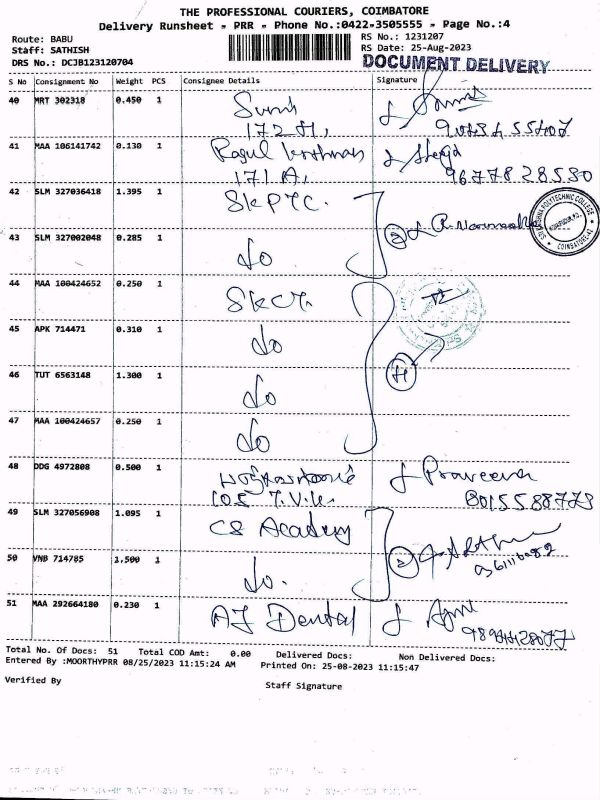 THE PROFESSIONAL COURIERS, COIMBATORE
Delivery Runsheet - PRR - Phone No.:0422-3505555 - Page No.:4
Route: BABU
Staff: SATHISH
DRS No.: DCJB123120704
RS No.: 1231207
RS Date: 25-Aug-2023
DOCUMENT DELIVERY
S No Consignment No Weight PCS Consignee Details Signature
40 MRT 302318 0.450 1
41 MAA 106141742 0.130 1
171 A.
9677828530
42 SLM 327036418 1.395 1 SKPTC.
43 SLM 327002048 0.285 1 do
44 MAA 100424652 0.250 1 SKCT.
45 APK 714471 0.310 1 do
46 TUT 6563148 1.300 1 do
47 MAA 100424657 0.250 1 do
48 DDG 4972808 0.500 1 Praveena
49 SLM 327056908 1.095 1 CS Academy
50 VNB 714785 1.500 1 do.
51 MAA 292664180 0.230 1 AJ Dental
Total No. Of Docs: 51 Total COD Amt: 0.00 Delivered Docs: Non Delivered Docs:
Entered By :MOORTHYPRR 08/25/2023 11:15:24 AM Printed On: 25-08-2023 11:15:47
Verified By Staff Signature